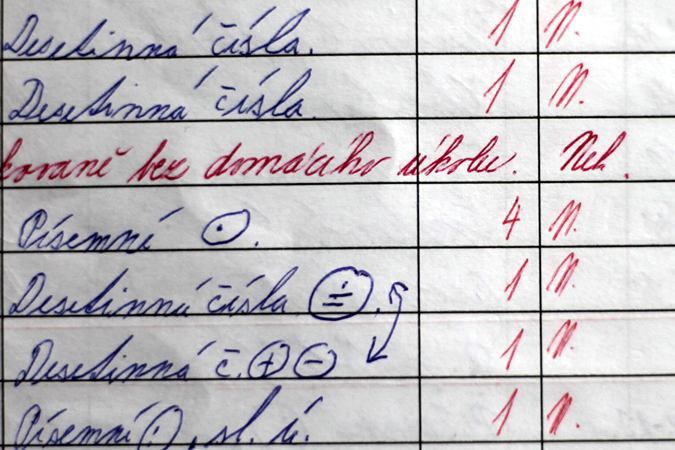 Desetinná čísla. 1 N.
Desetinná čísla. 1 N.
kovaně bez domácího úkolu. Neh.
Písemné ⊙. 4 N.
Desetinná čísla ÷. 1 N.
Desetinná č. + - 1 N.
Písemné :, sl. ú. 1 N.